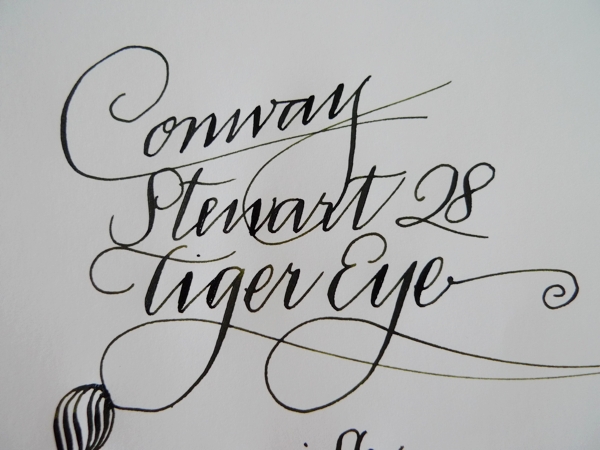 Conway
Stewart 28
Tiger Eye